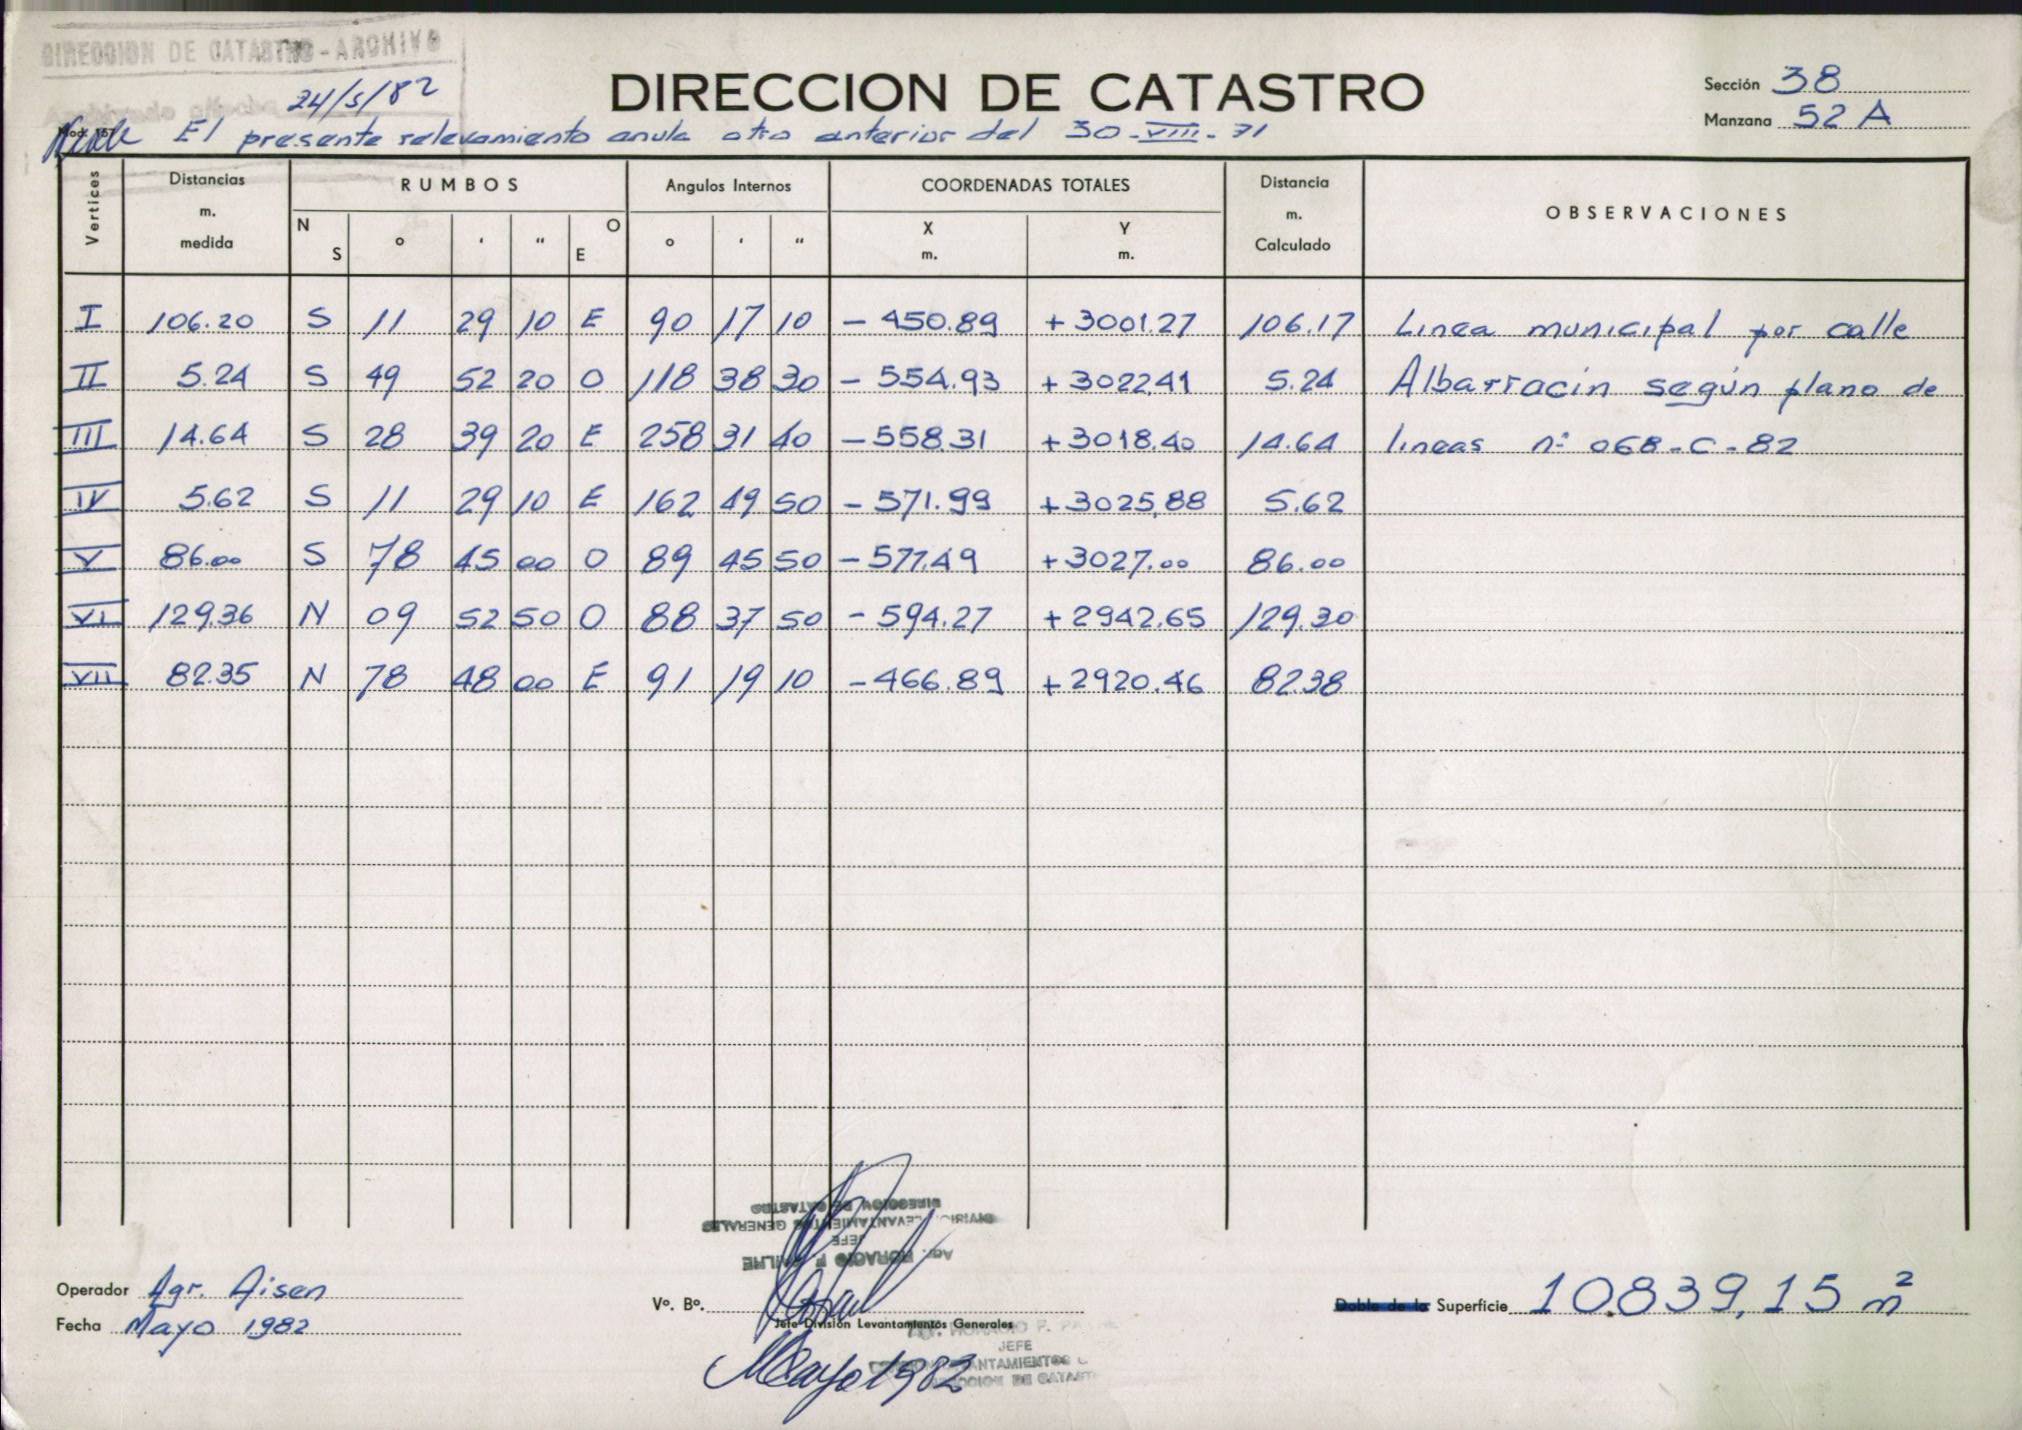 DIRECCION DE CATASTRO - ARCHIVO
24/5/82
DIRECCION DE CATASTRO
Sección 38
Manzana 52 A
El presente relevamiento anula otro anterior del 30-VIII-71
Vertices Distancias m. medida RUMBOS N S ° ' " O E Angulos Internos ° ' " COORDENADAS TOTALES X m. Y m. Distancia m. Calculado OBSERVACIONES
I 106.20 S 11 29 10 E 90 17 10 - 450.89 + 3001.27 106.17 Linea municipal por calle
II 5.24 S 49 52 20 O 118 38 30 - 554.93 + 3022,41 5.24 Albarracin según plano de
III 14.64 S 28 39 20 E 258 31 40 - 558.31 + 3018.40 14.64 lineas nº 068-C-82
IV 5.62 S 11 29 10 E 162 49 50 - 571.99 + 3025,88 5.62
V 86.00 S 78 45 00 O 89 45 50 - 577.49 + 3027.00 86.00
VI 129.36 N 09 52 50 O 88 37 50 - 594.27 + 2942.65 129.30
VII 82.35 N 78 48 00 E 91 19 10 - 466.89 + 2920.46 82.38
Operador Agr. Aisen
Fecha Mayo 1982
Vº. Bº.
Jefe División Levantamientos Generales
JEFE
Mayo 1982
Doble de la Superficie 10.839,15 m²